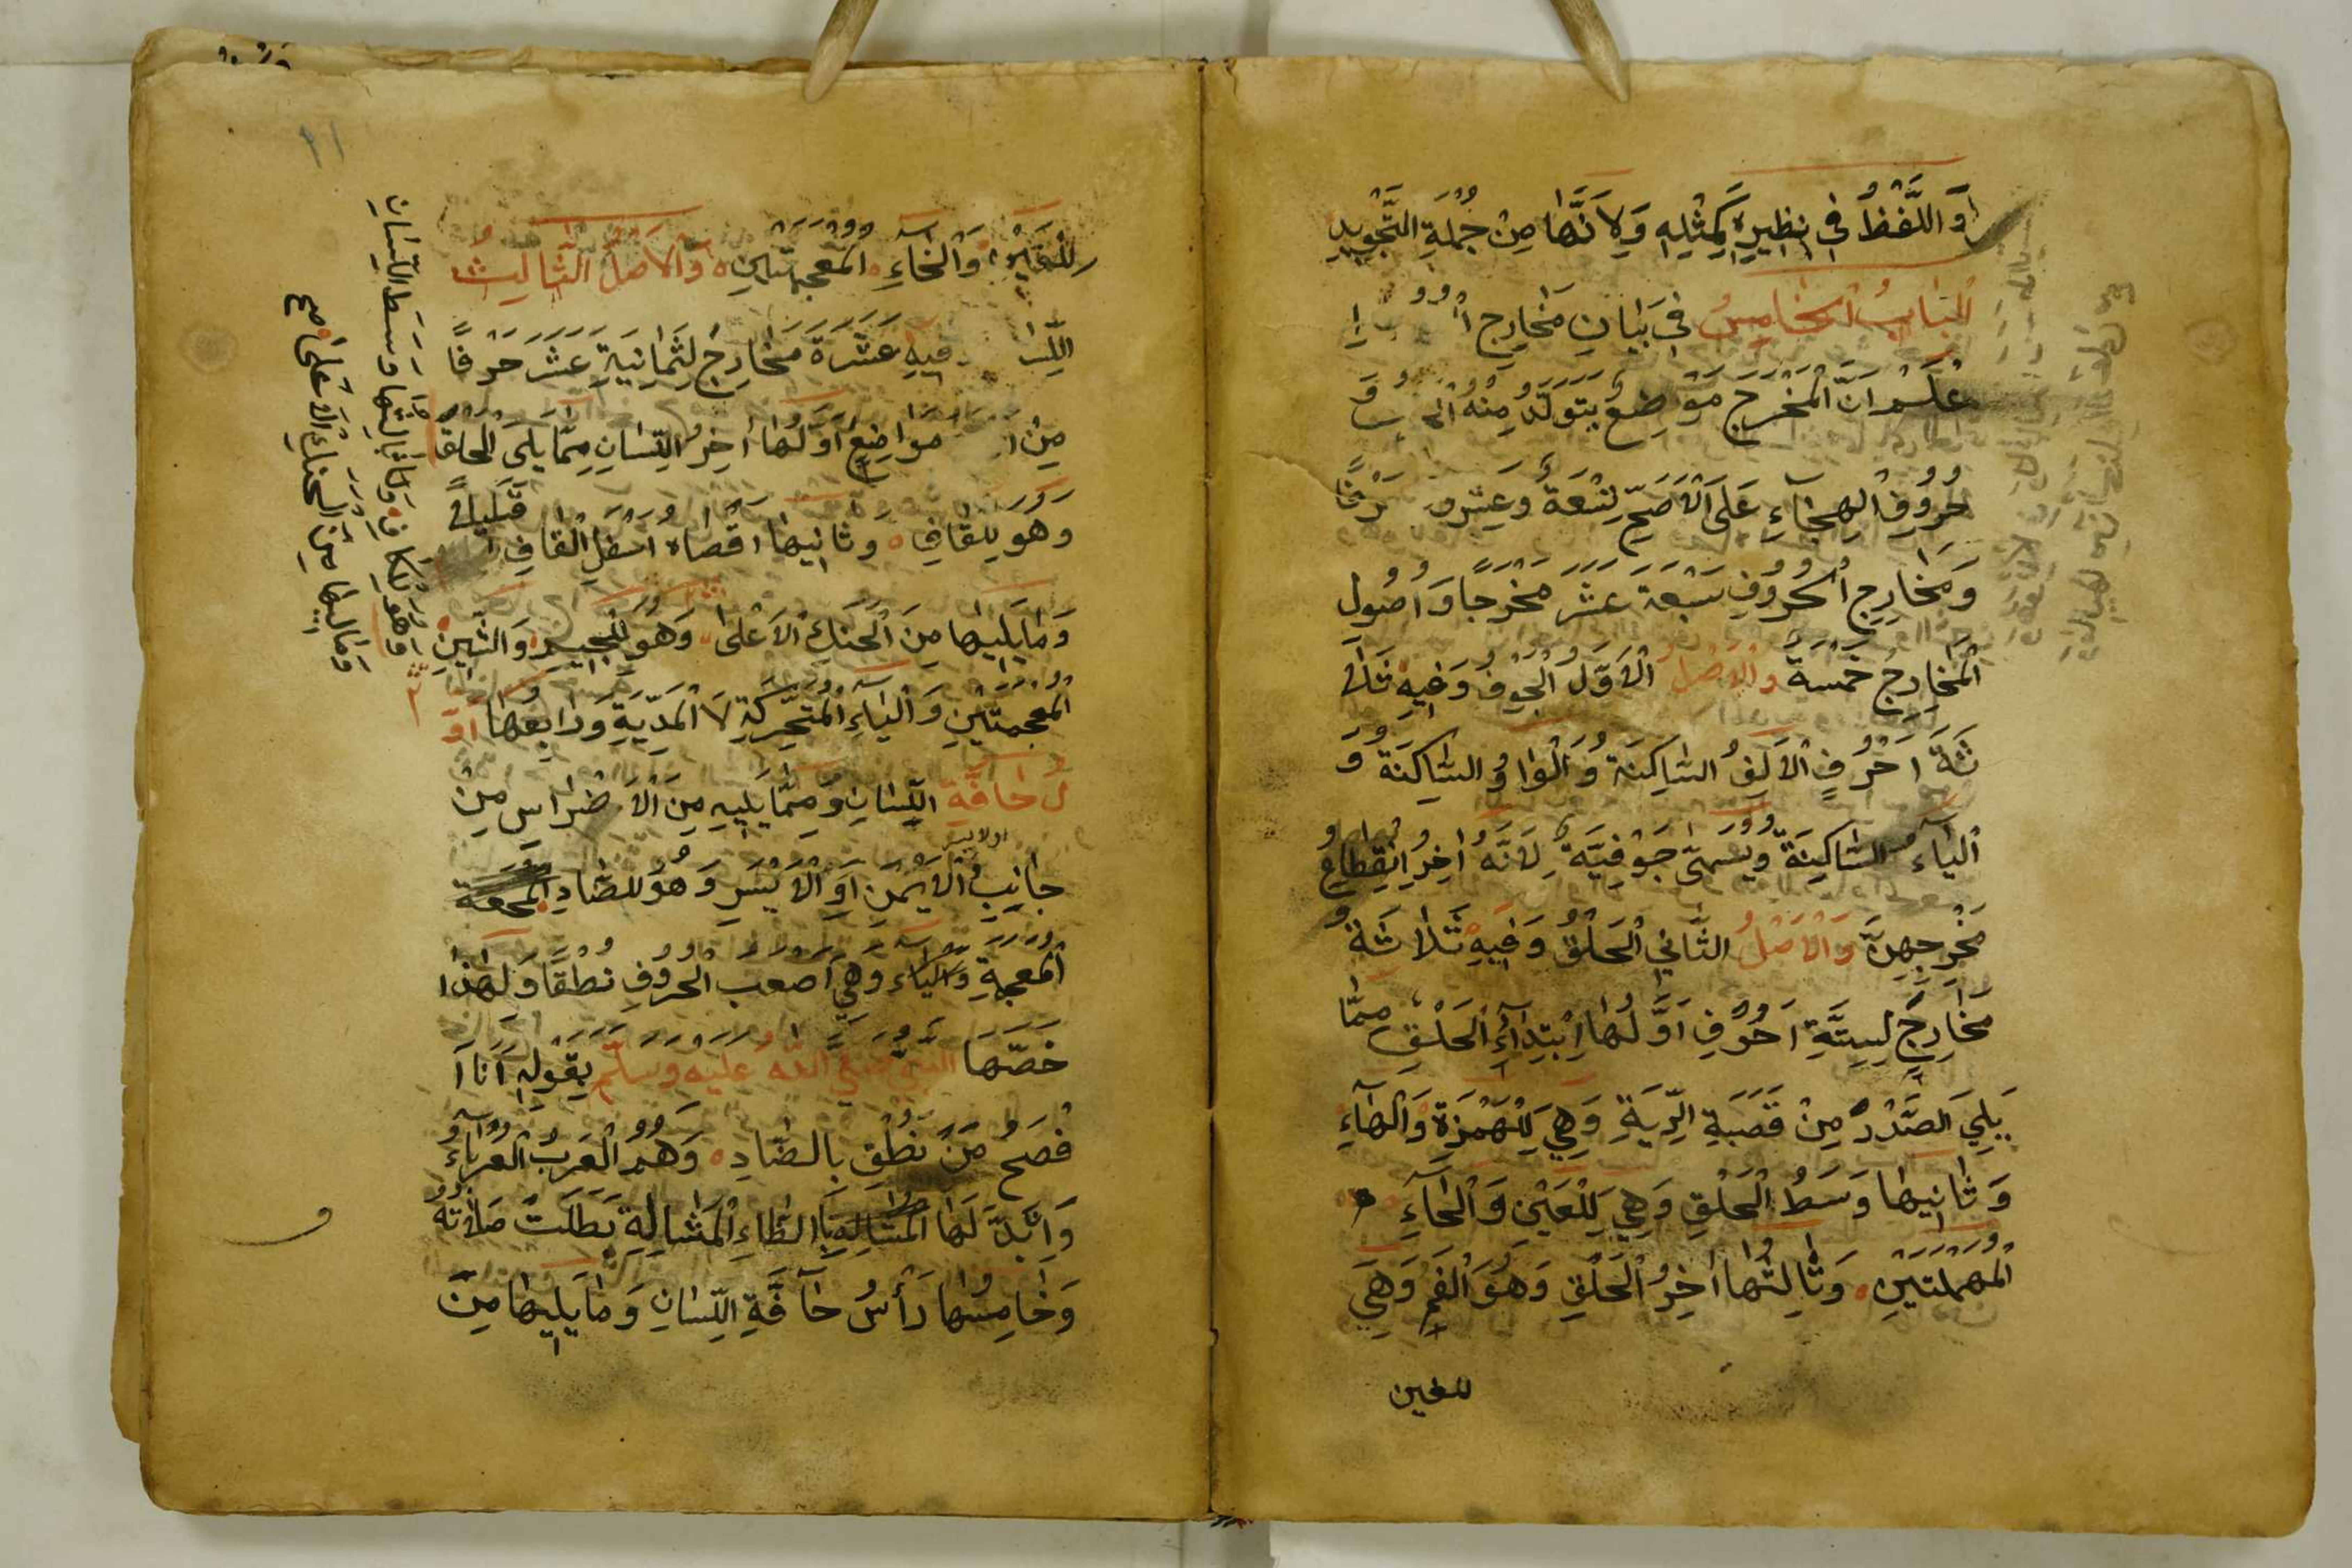 وَاللَّفْظُ فِي نَظِيرِهِ كَمِثْلِهِ وَلِأَنَّهَا مِنْ جُمْلَةِ التَّجْوِيدِ
اَلْبَابُ الْخَامِسُ فِي بَيَانِ مَخَارِجِ
اعْلَمْ اَنَّ الْمَخْرَجَ مَوْضِعٌ يَتَوَلَّدُ مِنْهُ
حُرُوفِ الْهِجَاءِ عَلَى الْاَصَحِّ تِسْعَةٌ وَعِشْرُونَ حَرْفًا
وَمَخَارِجُ الْحُرُوفِ سَبْعَةَ عَشَرَ مَخْرَجًا وَاُصُولِ
الْمَخَارِجُ خَمْسَةٌ وَالْاَصْلُ الْاَوَّلُ الْجَوْفُ وَفِيهِ ثَلَا
ثَةُ اَحْرُفٍ الْاَلِفُ السَّاكِنَةُ وَالْوَاوُ السَّاكِنَةُ وَ
الْيَاءُ السَّاكِنَةُ وَيُسَمَّى جَوْفِيَّةً لِاَنَّهُ اٰخِرُ انْقِطَاعِ
مَخْرَجِهِنَّ وَالْاَصْلُ الثَّانِي الْحَلْقُ وَفِيهِ ثَلَاثَةُ
مَخَارِجَ لِسِتَّةِ اَحْرُفٍ اَوَّلُهَا اِبْتِدَاءُ الْحَلْقِ مِمَّا
يَلِيَ الصَّدْرَ مِنْ قَصَبَةِ الرِّيَةِ وَهِيَ لِلْهَمْزَةِ وَالْهَاءِ
وَثَانِيهَا وَسَطُ الْحَلْقِ وَهِيَ لِلْعَيْنِ وَالْحَاءِ
الْمُهْمَلَتَيْنِ وَثَالِثُهَا اٰخِرُ الْحَلْقِ وَهُوَ الْفَمُ وَهِيَ
للغين
لِلْغَيْنِ وَالْخَاءِ الْمُعْجَمَتَيْنِ وَالْاَصْلُ الثَّالِثُ
اللِّسَا فِيهِ عَشَرَةُ مَخَارِجَ لِثَمَانِيَةِ عَشَرَ حَرْفًا
مِنْ مَوَاضِعَ اَوَّلُهَا اٰخِرُ اللِّسَانِ مِمَّا يَلِيَ الْحَلْقَ
وَهُوَ لِلْقَافِ وَثَانِيهَا اَقْصَاهُ اَسْفَلِ الْقَافِ قَلِيلًا
وَمَا يَلِيهَا مِنَ الْحَنَكِ الْاَعْلَى وَهُوَ لِلْجِيمِ وَالشِّينِ
الْمُعْجَمَتَيْنِ وَالْيَاءِ الْمُتَحَرِّكَةِ لَا الْمَدِّيَّةِ وَرَابِعُهَا اَوَّ
لُ حَافَّةِ اللِّسَانِ وَمِمَّا يَلِيهِ مِنَ الْاَضْرَاسِ مِنْ
جَانِبِ الْاَيْمَنِ اَوِ الْاَيْسَرِ وَهُوَ لِلضَّادِ
الْمُعْجَمَةِ وَهِيَ اَصْعَبُ الْحُرُوفِ نُطْقًا وَلِهٰذَا
خَصَّهَا النَّبِيُّ صَلَّى اللّٰهُ عَلَيْهِ وَسَلَّمَ بِقَوْلِهِ اَنَا اَ
فْصَحُ مَنْ نَطَقَ بِالضَّادِ وَهُمُ الْعَرَبُ الْعُرَبَاءُ
وَاِنْ بَدَّلَهَا بِالظَّاءِ الْمُشَالَةِ بَطَلَتْ صَلَاتُهُ
وَخَامِسُهَا رَأْسُ حَافَّةِ اللِّسَانِ وَمَا يَلِيهَا مِنَ
وَهُوَ لِلْكَافِ وَثَالِثُهَا وَسَطُ اللِّسَانِ
وَمَا يَلِيهَا مِنَ الْحَنَكِ الْاَعْلَى صح